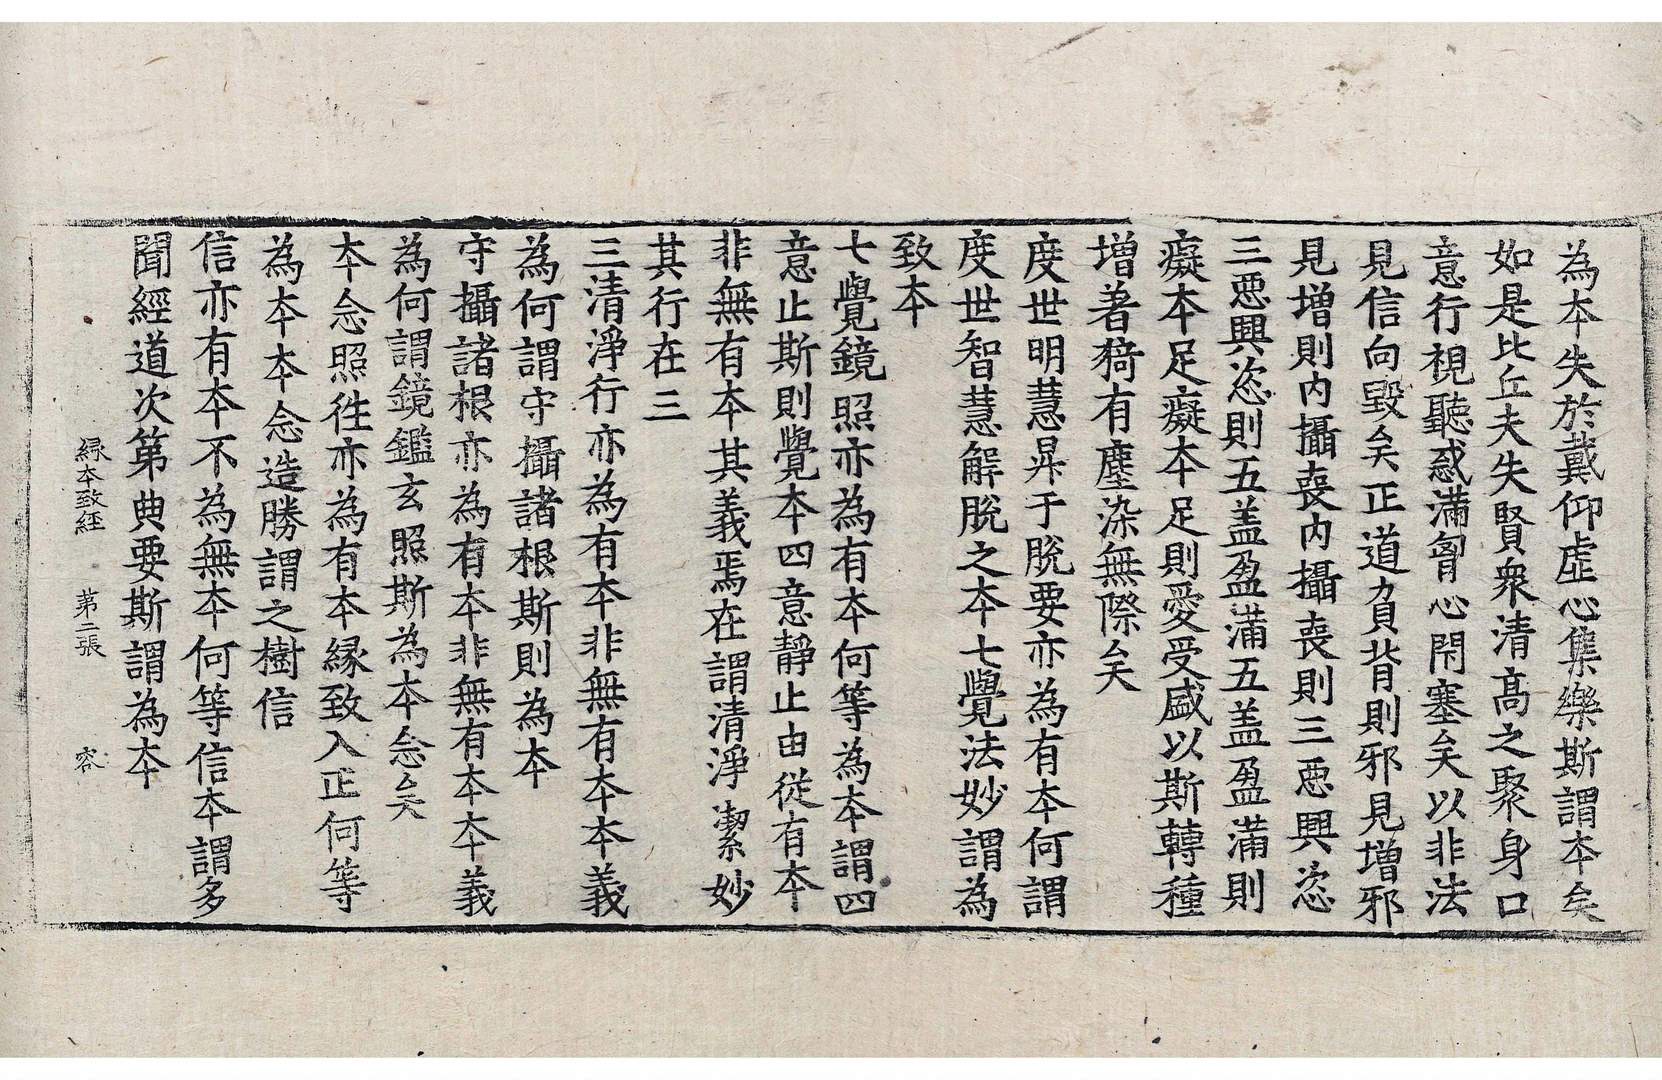 為本失於戴仰虛心集樂斯謂本矣
如是比丘夫失賢衆清高之聚身口
意行視聽惑滿匈心閇塞矣以非法
見信向毀矣正道負背則邪見增邪
見增則內攝喪內攝喪則三惡興恣
三惡興恣則五盖盈滿五盖盈滿則
癡本足癡本足則愛受盛以斯轉種
增著猗有塵染無際矣
度世明慧昇于脫要亦為有本何謂
度世智慧解脫之本七覺法妙謂為
致本
七覺鏡照亦為有本何等為本謂四
意止斯則覺本四意靜止由從有本
非無有本其義焉在謂清淨潔妙
其行在三
三清淨行亦為有本非無有本本義
為何謂守攝諸根斯則為本
守攝諸根亦為有本非無有本本義
為何謂鏡鑑玄照斯為本念矣
本念照徃亦為有本緣致入正何等
為本本念造勝謂之樹信
信亦有本不為無本何等信本謂多
聞經道次第典要斯謂為本
緣本致經　第二張　容